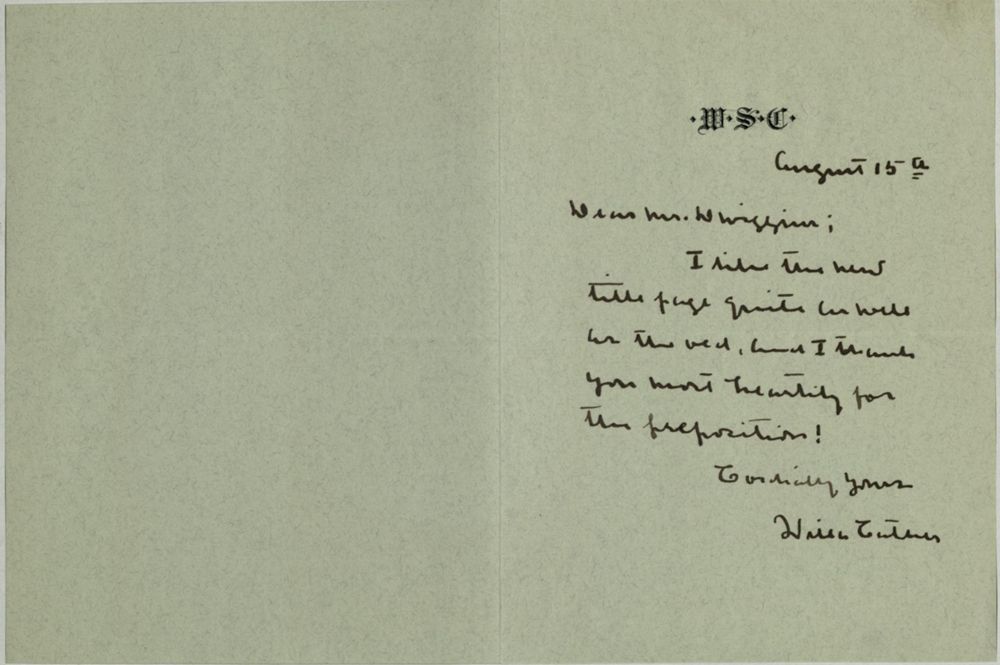 ·W·S·C·
August 15th
Dear Mr. Dwiggins;
I like the new
title page quite as well
as the red, and I thank
you most heartily for
the preposition!
Cordially yours
Willa Cather